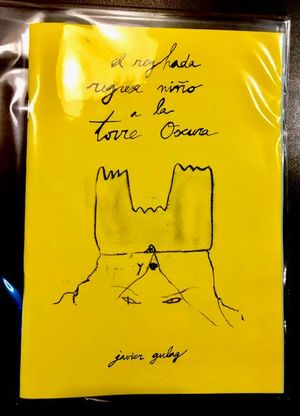 el rey hada
regresa niño
a la
torre Oscura
javier gulag